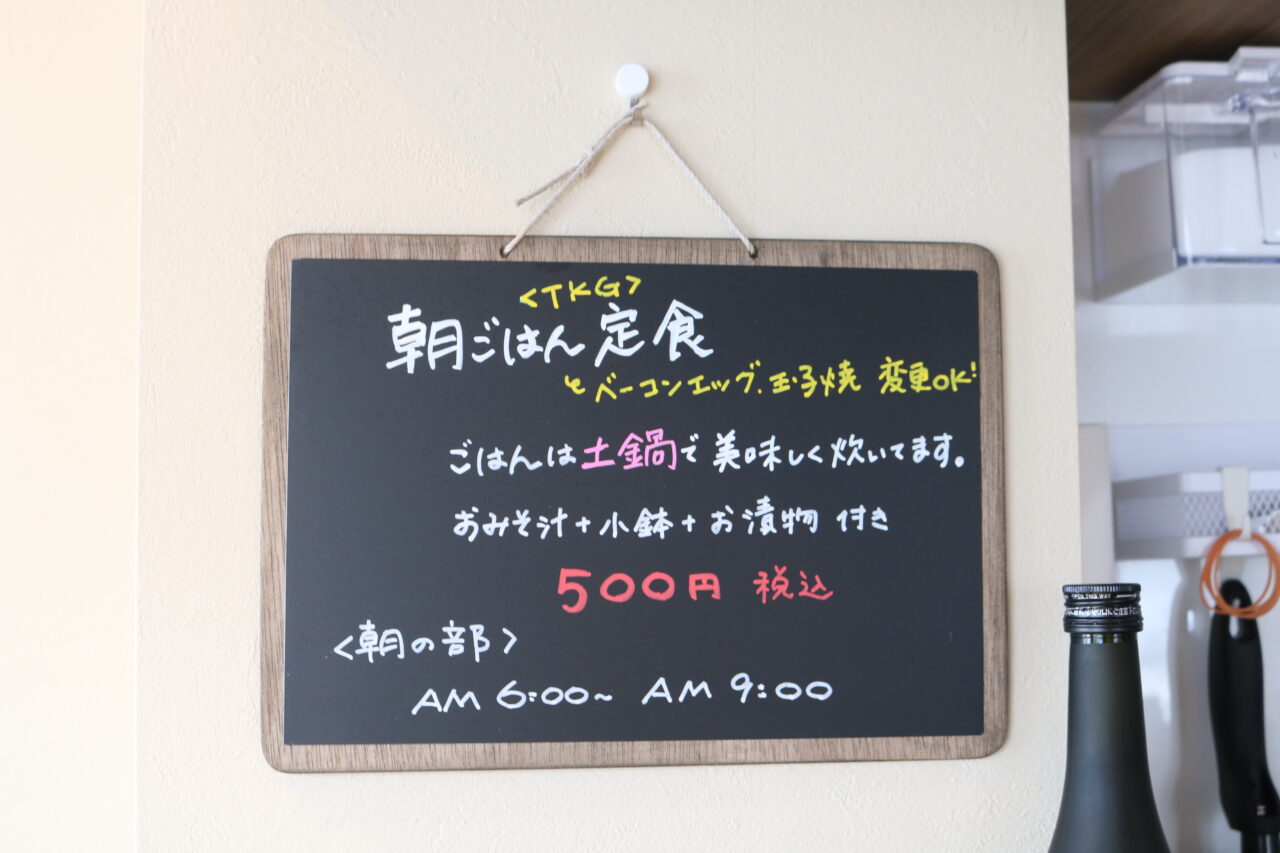 <TKG>
朝ごはん定食
とベーコンエッグ、玉子焼 変更OK!
ごはんは土鍋で美味しく炊いてます。
おみそ汁+小鉢+お漬物 付き
500円 税込
<朝の部>
AM 6:00~ AM 9:00
OPEN THIS WAY